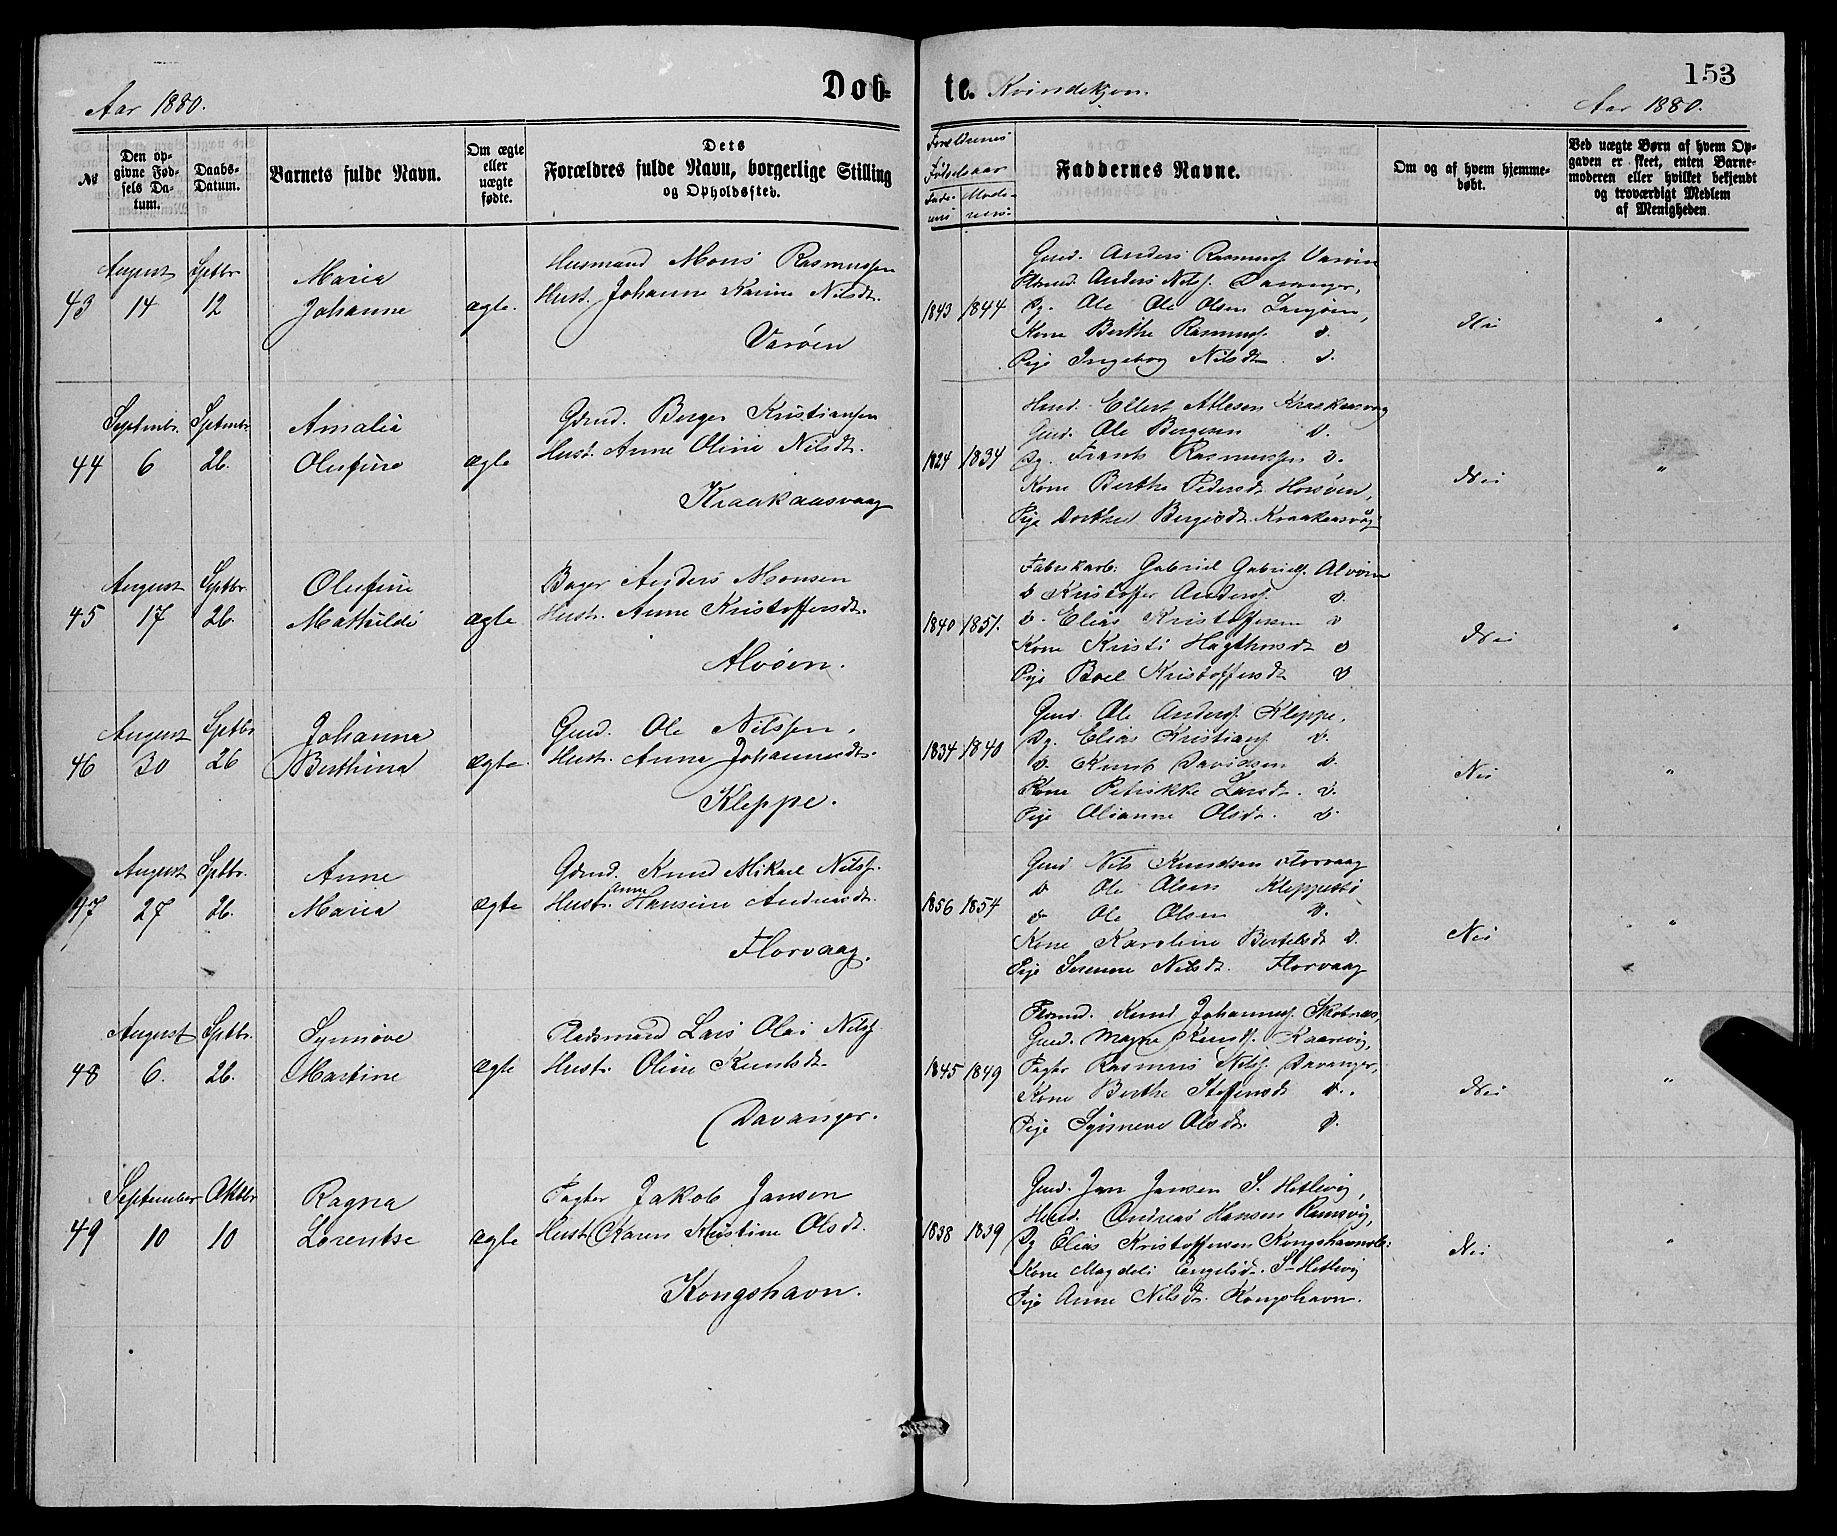 153
Døb- te. Kvindekjøn.
Aar 1880. Aar 1880.
No
Den op-
givne Fød-
sels Da-
tum.
Daabs-
Datum.
Barnets fulde Navn.
Om ægte
eller
uægte
fødte.
Dets
Forældres fulde Navn, borgerlige Stilling
og Opholdssted.
Forældrenes
Fødselsaar
Fade-
rens
Mode-
rens
Faddernes Navne.
Om og af hvem hjemme-
døbt.
Ved uægte Børn af hvem Op-
gaven er skeet, enten Barne-
moderen eller hvilket bekjendt
og troværdigt Medlem
af Menigheden.
43
August
14
Septbr
12
Maria
Johanne
ægte.
Husmand Mons Rasmussen
Hust. Johanne Karine Nilsdt.
Varøen
1843 1844
Gmd. Anders Rasmuss. Varøen
Anders Nilss. Davanger,
Ug. Ole Olsen
Kone Berthe Rasmusd. d.
Pige Ingeborg Nilsdt. d.
Nei
"
44
Septembr.
6
Septembr
26.
Amalia
Olufine
ægte
Gdmd. Berger Kristiansen
Hust. Anne Oline Nilsdt.
Kraakaasvaag
1824 1834
Husd. Ellert Atlesen Kraakaasvaag
Gmd. Ole Bergesen d.
Ug. Frants Rasmussen d.
Kone Berthe Pedersdt. Horsøen,
Pige Dorthea Bergesdt. Kraakaasvåg
Nei
"
45
August
17
Septbr
26.
Olufine
Mathilde
ægte
Bager Anders Monsen
Hustr. Anne Kristoffersdt.
Alvøen.
1840 1851.
Fabrikarb. Gabriel Gabriels. Alvøen
d Kristoffer Anders. d.
d. Elias Kristoffersen d
Kone Kristi Hagthunsdt d
Pige Boel Kristoffersdt d
Nei
"
46
August
30
Septbr
26
Johanna
Berthina
ægte
Gmd. Ole Nilssen,
Hustr. Anna Johannesdt.
Kleppe.
1834 1840
Gmd. Ole Anders. Kleppe.
Ug. Elias Kristians. d.
d. Knut Davidsen d.
Kone Petrikke Larsdt. d.
Pige Olianne Olsdt. d.
Nei
"
47
August
27
Septbr.
26.
Anne
Maria
ægte
Gdmd. Knud Mikael Nilss.
Anne
Hustr. Hansine Andreasdt.
Florvaag.
1856 1854
Gmd Nils Knudsen Florvaag
d Ole Olsen Kleppestø
d Ole Olsen d.
Kone Karoline Bertelsdt d.
Pige Serenne Nilsdt. Florvaag
Nei
"
48
August
6.
Septbr.
26.
Synnøve
Martine
ægte
Pladsmand Lars Olai Nilss
Hustr. Oline Knutsdt.
Davanger.
1845 1849
Knud Johanness. Skotnes,
Gmd. Magne Knuds. Kaarvig,
Pagter Rasmus Nilss. Davanger,
Kone Berthe Steffensdt d.
Pige Synneve Olsdt. d.
Nei
"
49
September
10
Oktbr
10
Ragna
Lorentse
ægte
Pagter Jakob Jansen
Hustr Karen Kristine Olsdt.
Kongshavn.
1838 1839
Gmd. Jan Jansen S. Hetlevig,
Husd. Andreas Hansen Ramsvig,
Ug Elias Kristoffersen Kongshavnsle:
Kone Magdeli Engelsdt. S-Hetlevig
Pige Anne Nilsdt. Kongshavn.
Nei
"